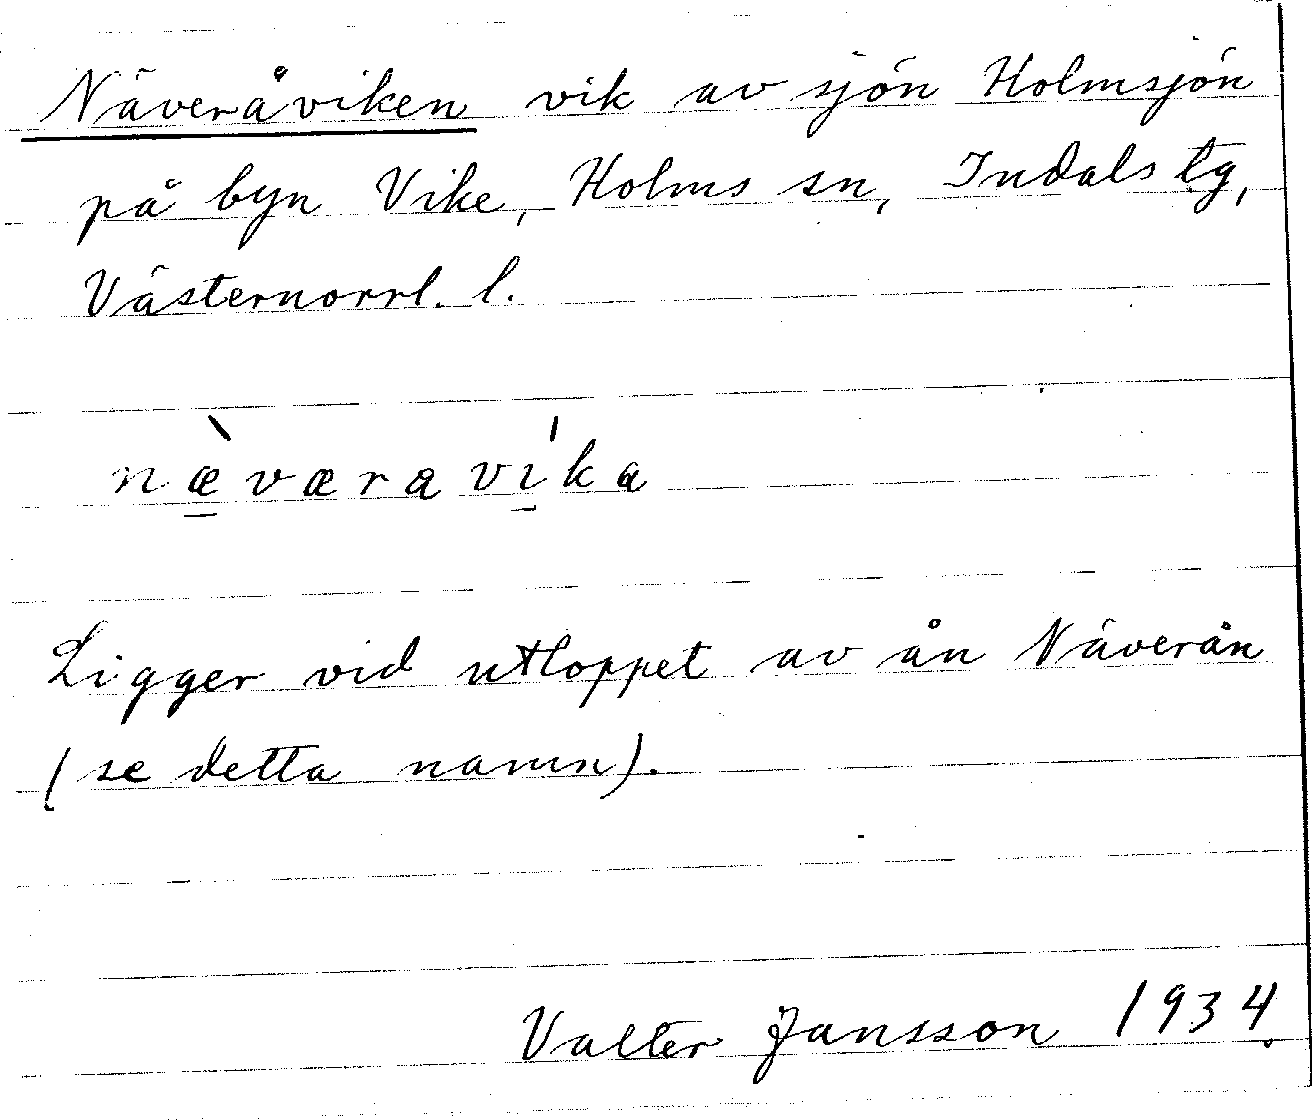 Näveråviken vik av sjön Holmsjön
på byn Vike, Holms sn, Indals tg,
Västernorrl. l.
næ̠̀væraví̠ka
Ligger vid utloppet av ån Näverån
(se detta namn).
Valter Jansson 1934.